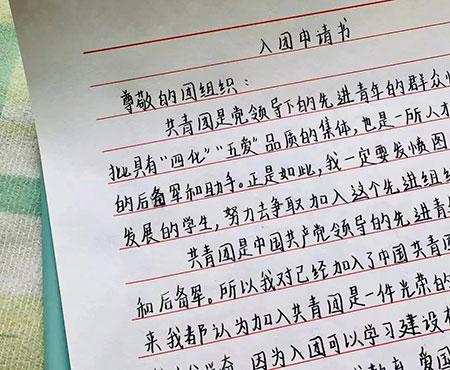 入团申请书
尊敬的团组织：
共青团是党领导下的先进青年的群众
批具有“四化”“五爱”品质的集体，也是一所人
的后备军和助手。正是如此，我一定要发愤图
发展的学生，努力去争取加入这个先进组织
共青团是中国共产党领导的先进青
和后备军。所以我对已经加入了中国共青团
来我都认为加入共青团是一件光荣的
因为入团可以学习建设
爱国